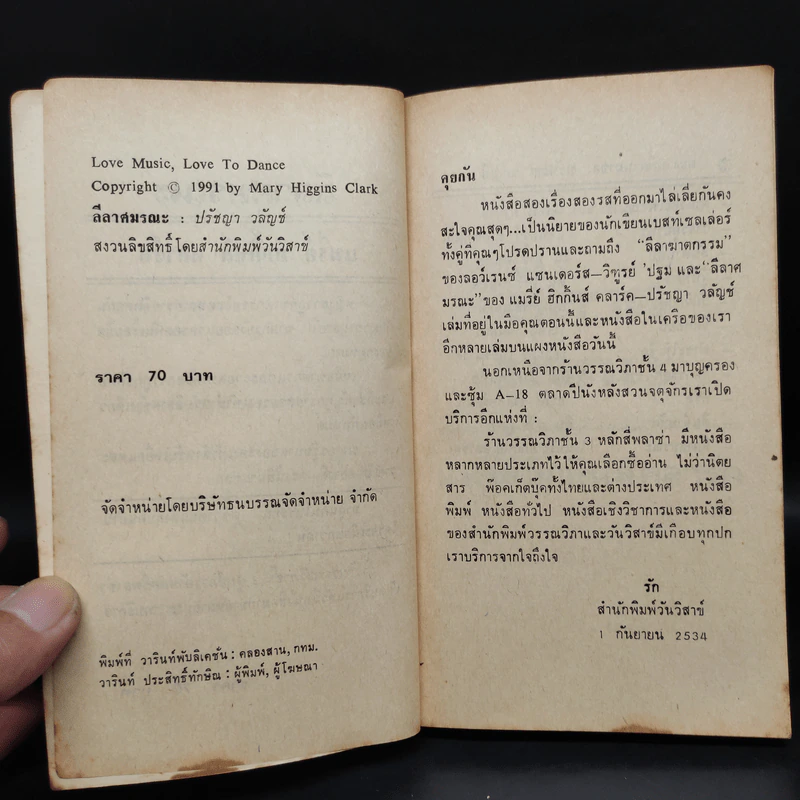 Love Music, Love To Dance
Copyright © 1991 by Mary Higgins Clark
ลีลาศมรณะ : ปรัชญา วลัญช์
สงวนลิขสิทธิ์ โดยสำนักพิมพ์วันวิสาข์
ราคา 70 บาท
จัดจำหน่ายโดยบริษัทธนบรรณจัดจำหน่าย จำกัด
พิมพ์ที่ วารินท์พับลิเคชั่น : คลองสาน, กทม.
วารินท์ ประสิทธิ์ทักษิณ : ผู้พิมพ์, ผู้โฆษณา
คุยกัน
หนังสือสองเรื่องสองรสที่ออกมาไล่เลี่ยกันคง
สะใจคุณสุดๆ...เป็นนิยายของนักเขียนเบสท์เซลเล่อร์
ทั้งคู่ที่คุณๆโปรดปรานและถามถึง “ลีลาฆาตกรรม”
ของลอว์เรนซ์ แซนเดอร์ส—วิฑูรย์ ’ปฐม และ “ลีลาศ
มรณะ” ของ แมรี่ย์ ฮิกกิ้นส์ คลาร์ค—ปรัชญา วลัญช์
เล่มที่อยู่ในมือคุณตอนนี้และหนังสือในเครือของเรา
อีกหลายเล่มบนแผงหนังสือวันนี้
นอกเหนือจากร้านวรรณวิภาชั้น 4 มาบุญครอง
และซุ้ม A—18 ตลาดปีนังหลังสวนจตุจักรเราเปิด
บริการอีกแห่งที่ :
ร้านวรรณวิภาชั้น 3 หลักสี่พลาซ่า มีหนังสือ
หลากหลายประเภทไว้ให้คุณเลือกซื้ออ่าน ไม่ว่านิตย
สาร พ๊อคเก็ตบุ๊คทั้งไทยและต่างประเทศ หนังสือ
พิมพ์ หนังสือทั่วไป หนังสือเชิงวิชาการและหนังสือ
ของสำนักพิมพ์วรรณวิภาและวันวิสาข์มีเกือบทุกปก
เราบริการจากใจถึงใจ
รัก
สำนักพิมพ์วันวิสาข์
1 กันยายน 2534